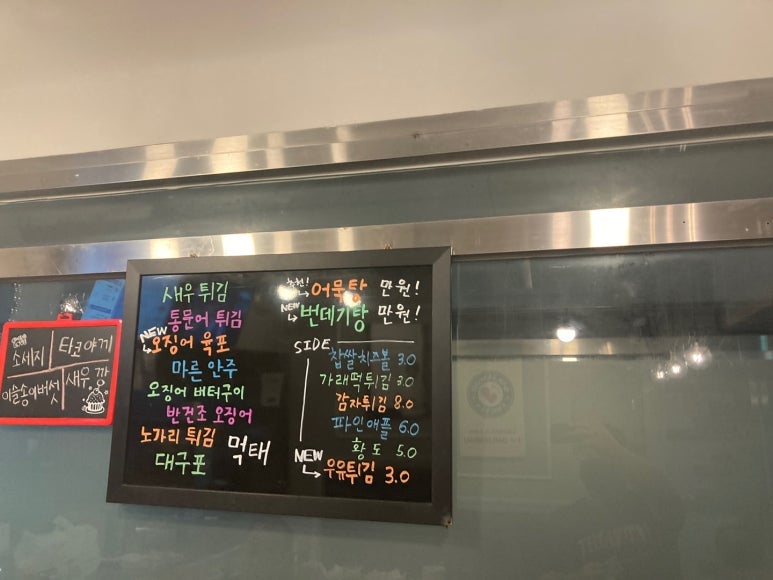 소세지
타코야끼
이슬송이버섯
새우깡
새우 튀김
통문어 튀김
NEW
오징어 육포
마른 안주
오징어 버터구이
반건조 오징어
노가리 튀김
먹태
대구포
추천!
어묵탕 만원!
NEW
번데기탕 만원!
SIDE
찹쌀치즈볼 3.0
가래떡튀김 3.0
감자튀김 8.0
파인애플 6.0
황도 5.0
NEW
우유튀김 3.0